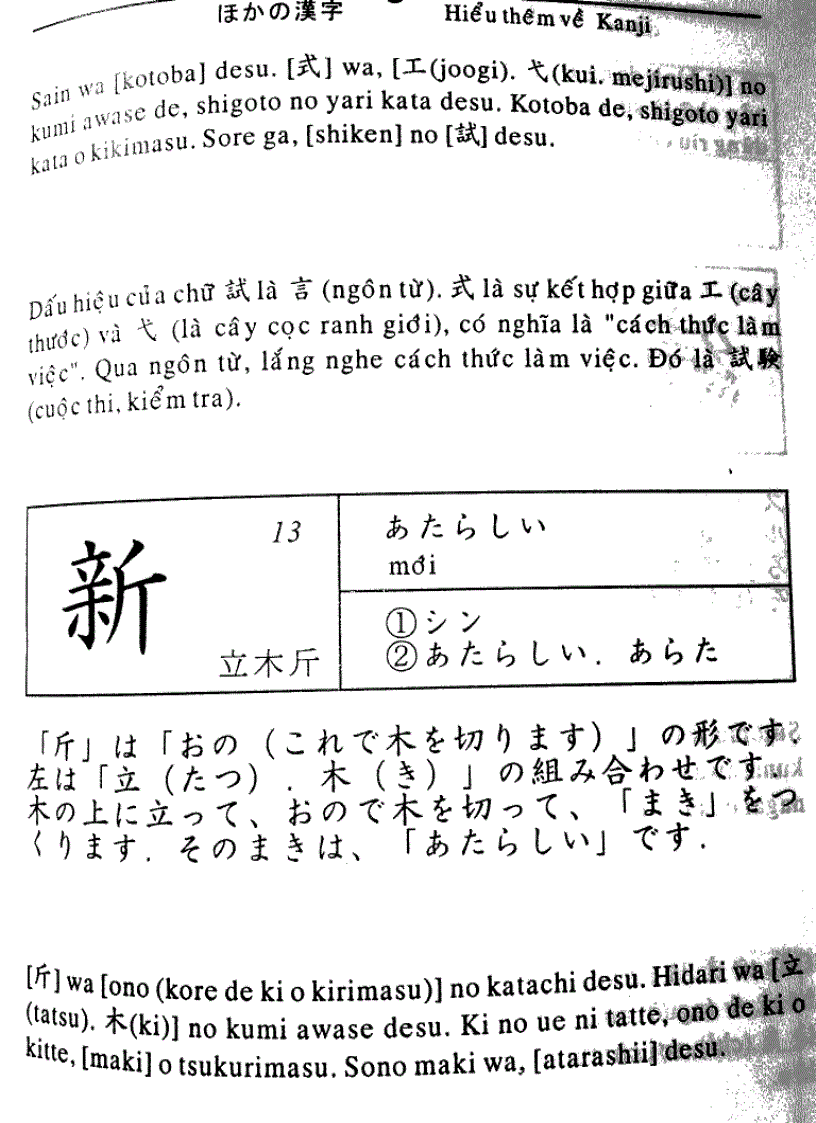 ほかの漢字 Hiểu thêm về Kanji
Sain wa [kotoba] desu. [式] wa, [工(joogi). 弋(kui. mejirushi)] no
kumi awase de, shigoto no yari kata desu. Kotoba de, shigoto yari
kata o kikimasu. Sore ga, [shiken] no [試] desu.
Dấu hiệu của chữ 試 là 言 (ngôn từ). 式 là sự kết hợp giữa 工 (cây
thước) và 弋 (là cây cọc ranh giới), có nghĩa là "cách thức làm
việc". Qua ngôn từ, lắng nghe cách thức làm việc. Đó là 試験
(cuộc thi, kiểm tra).
新
13
立木斤
あたらしい
mới
①シン
②あたらしい. あらた
「斤」は「おの (これで木を切ります) 」の形です.
左は「立 (たつ) . 木 (き) 」の組み合わせです.
木の上に立って、おので木を切って、「まき」をつ
くります. そのまきは、「あたらしい」です.
[斤] wa [ono (kore de ki o kirimasu)] no katachi desu. Hidari wa [立
(tatsu). 木(ki)] no kumi awase desu. Ki no ue ni tatte, ono de ki o
kitte, [maki] o tsukurimasu. Sono maki wa, [atarashii] desu.